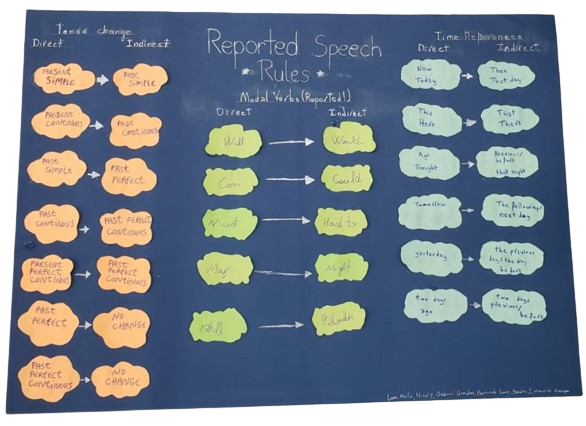 Tense change
Direct
Indirect
PRESENT
SIMPLE
PAST
SIMPLE
PRESENT
CONTINUOUS
PAST
CONTINUOUS
PAST
SIMPLE
PAST
PERFECT
PAST
CONTINOUS
PAST PERFECT
CONTINOUS
PRESENT
PERFECT
CONTINUOUS
PAST
PERFECT
CONTINUOUS
PAST
PERFECT
NO
CHANGE
PAST
PERFECT
CONTINUOUS
NO
CHANGE
Reported Speech
Rules
Modal Verbs (Reported!)
Direct
Indirect
Will
Would
Can
Could
Must
Had to
May
Might
Shall
Should
Time References
Direct
Indirect
Now
Today
Then
That day
This
Here
That
There
Ago
Tonight
Previous/
before
that night
Tomorrow
The following/
next day
yesterday
the previous
day/the day
before
two days
ago
two days
previous/
before